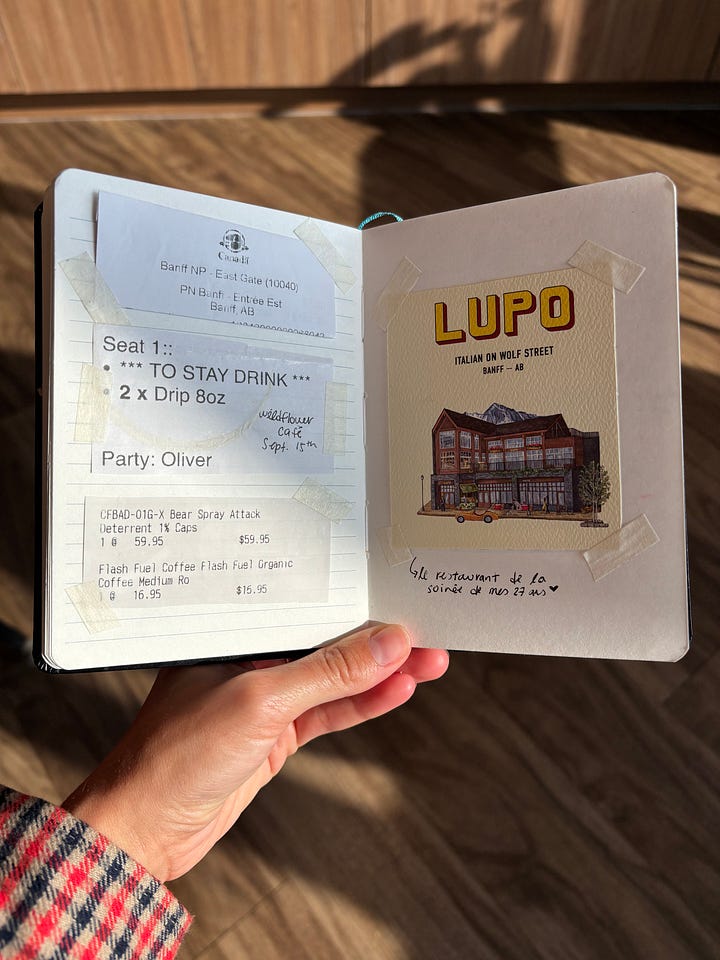 Canada
Banff NP - East Gate (10040)
PN Banff - Entrée Est
Banff, AB
Seat 1::
• *** TO STAY DRINK ***
• 2 x Drip 8oz
wildflower
café
Sept. 15th
Party: Oliver
CFBAD-01G-X Bear Spray Attack
Deterrent 1% Caps
1 @ 59.95 $59.95
Flash Fuel Coffee Flash Fuel Organic
Coffee Medium Ro
1 @ 16.95 $16.95
LUPO
ITALIAN ON WOLF STREET
BANFF — AB
le restaurant de la
soirée de mes 27 ans ♥